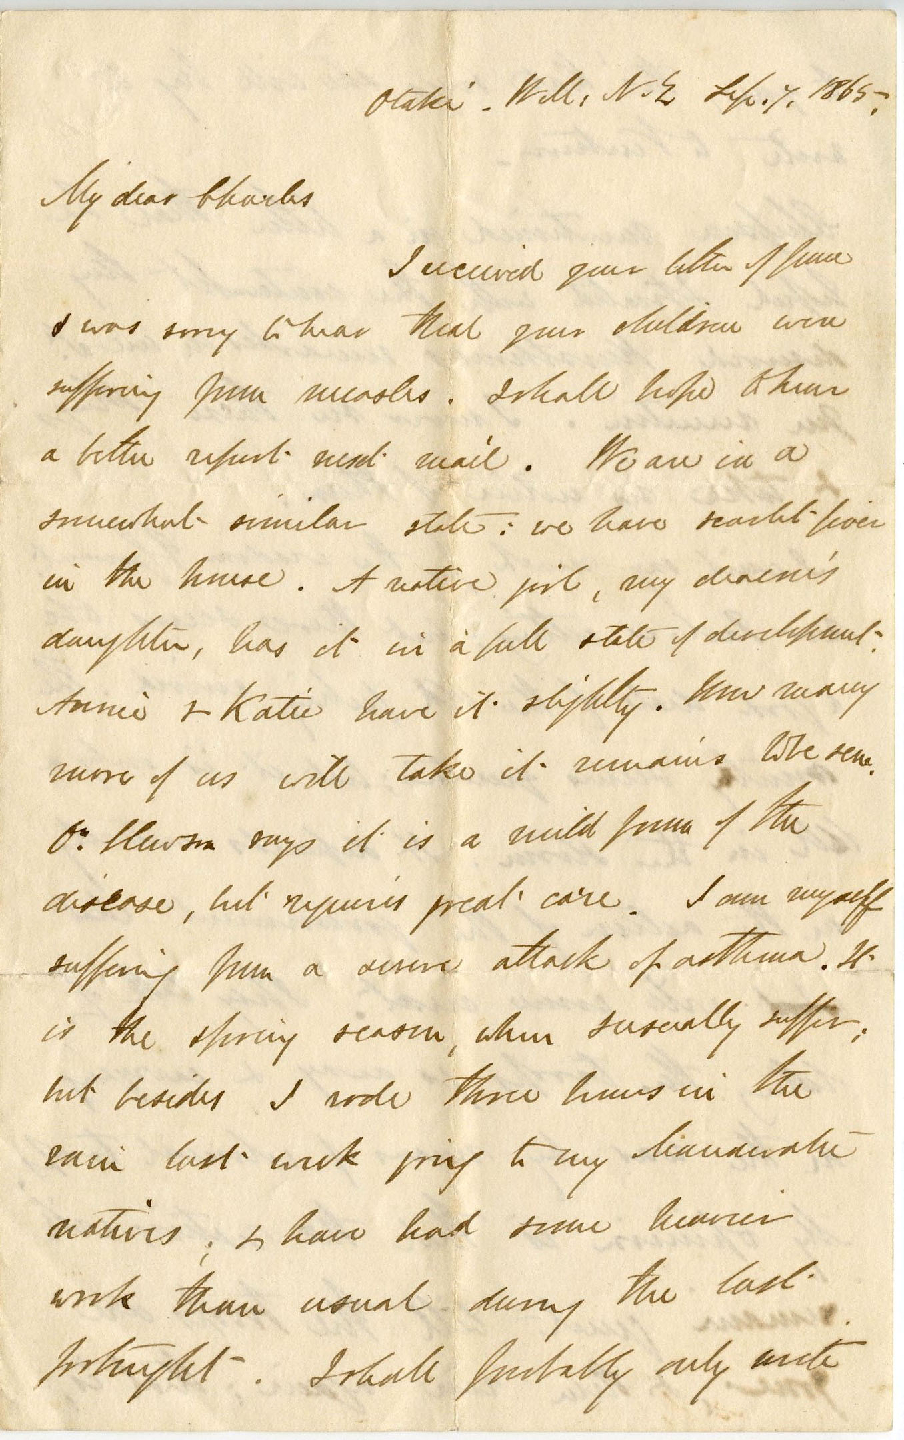 Otaki - Well: N.Z Sep. 7. 1865.
My dear Charles
I received your letter of June
I was sorry to hear that your children were
suffering from measles. I shall hope to hear
a better report next mail. We are in a
somewhat similar state: we have scarlet fever
in the house. A native girl, my deacon's
daughter, has it in a full state of development.
Annie & Katie have it slightly. How many
more of us will take it remains to be seen.
Dr. Hewson says it is a mild form of the
disease, but requires great care. I am myself
suffering from a severe attack of asthma. It
is the spring season, when I usually suffer;
but besides I rode three hours in the
rain last week going to my
natives; & have had some heavier
work than usual during the last
fortnight. I shall probably only write